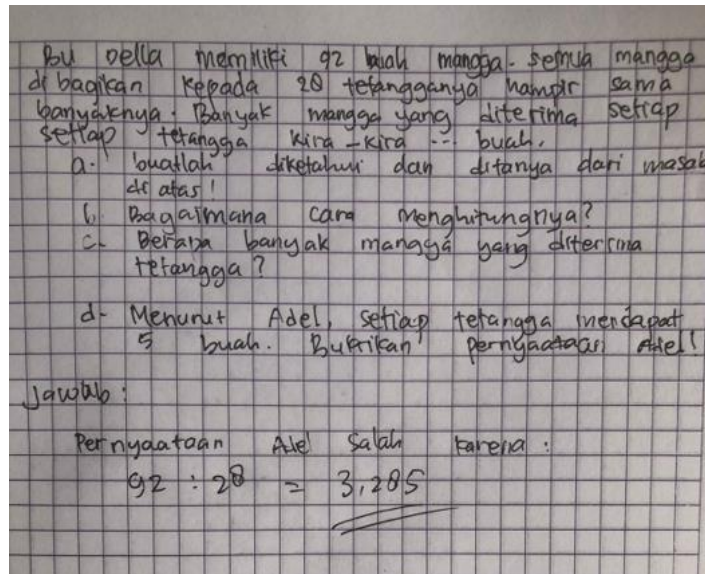 Bu Della memiliki 92 buah mangga. Semua mangga
di bagikan kepada 28 tetangganya hampir sama
banyaknya. Banyak mangga yang diterima setiap
setiap tetangga kira-kira ... buah.
a. buatlah diketahui dan ditanya dari masal
di atas!
b. Bagaimana cara menghitungnya?
c. Berapa banyak mangga yang diterima
tetangga?
d. Menurut Adel, setiap tetangga mendapat
5 buah. Buktikan pernyaataan Adel!
Jawab:
Pernyaataan Adel salah karena:
92 : 28 = 3,285